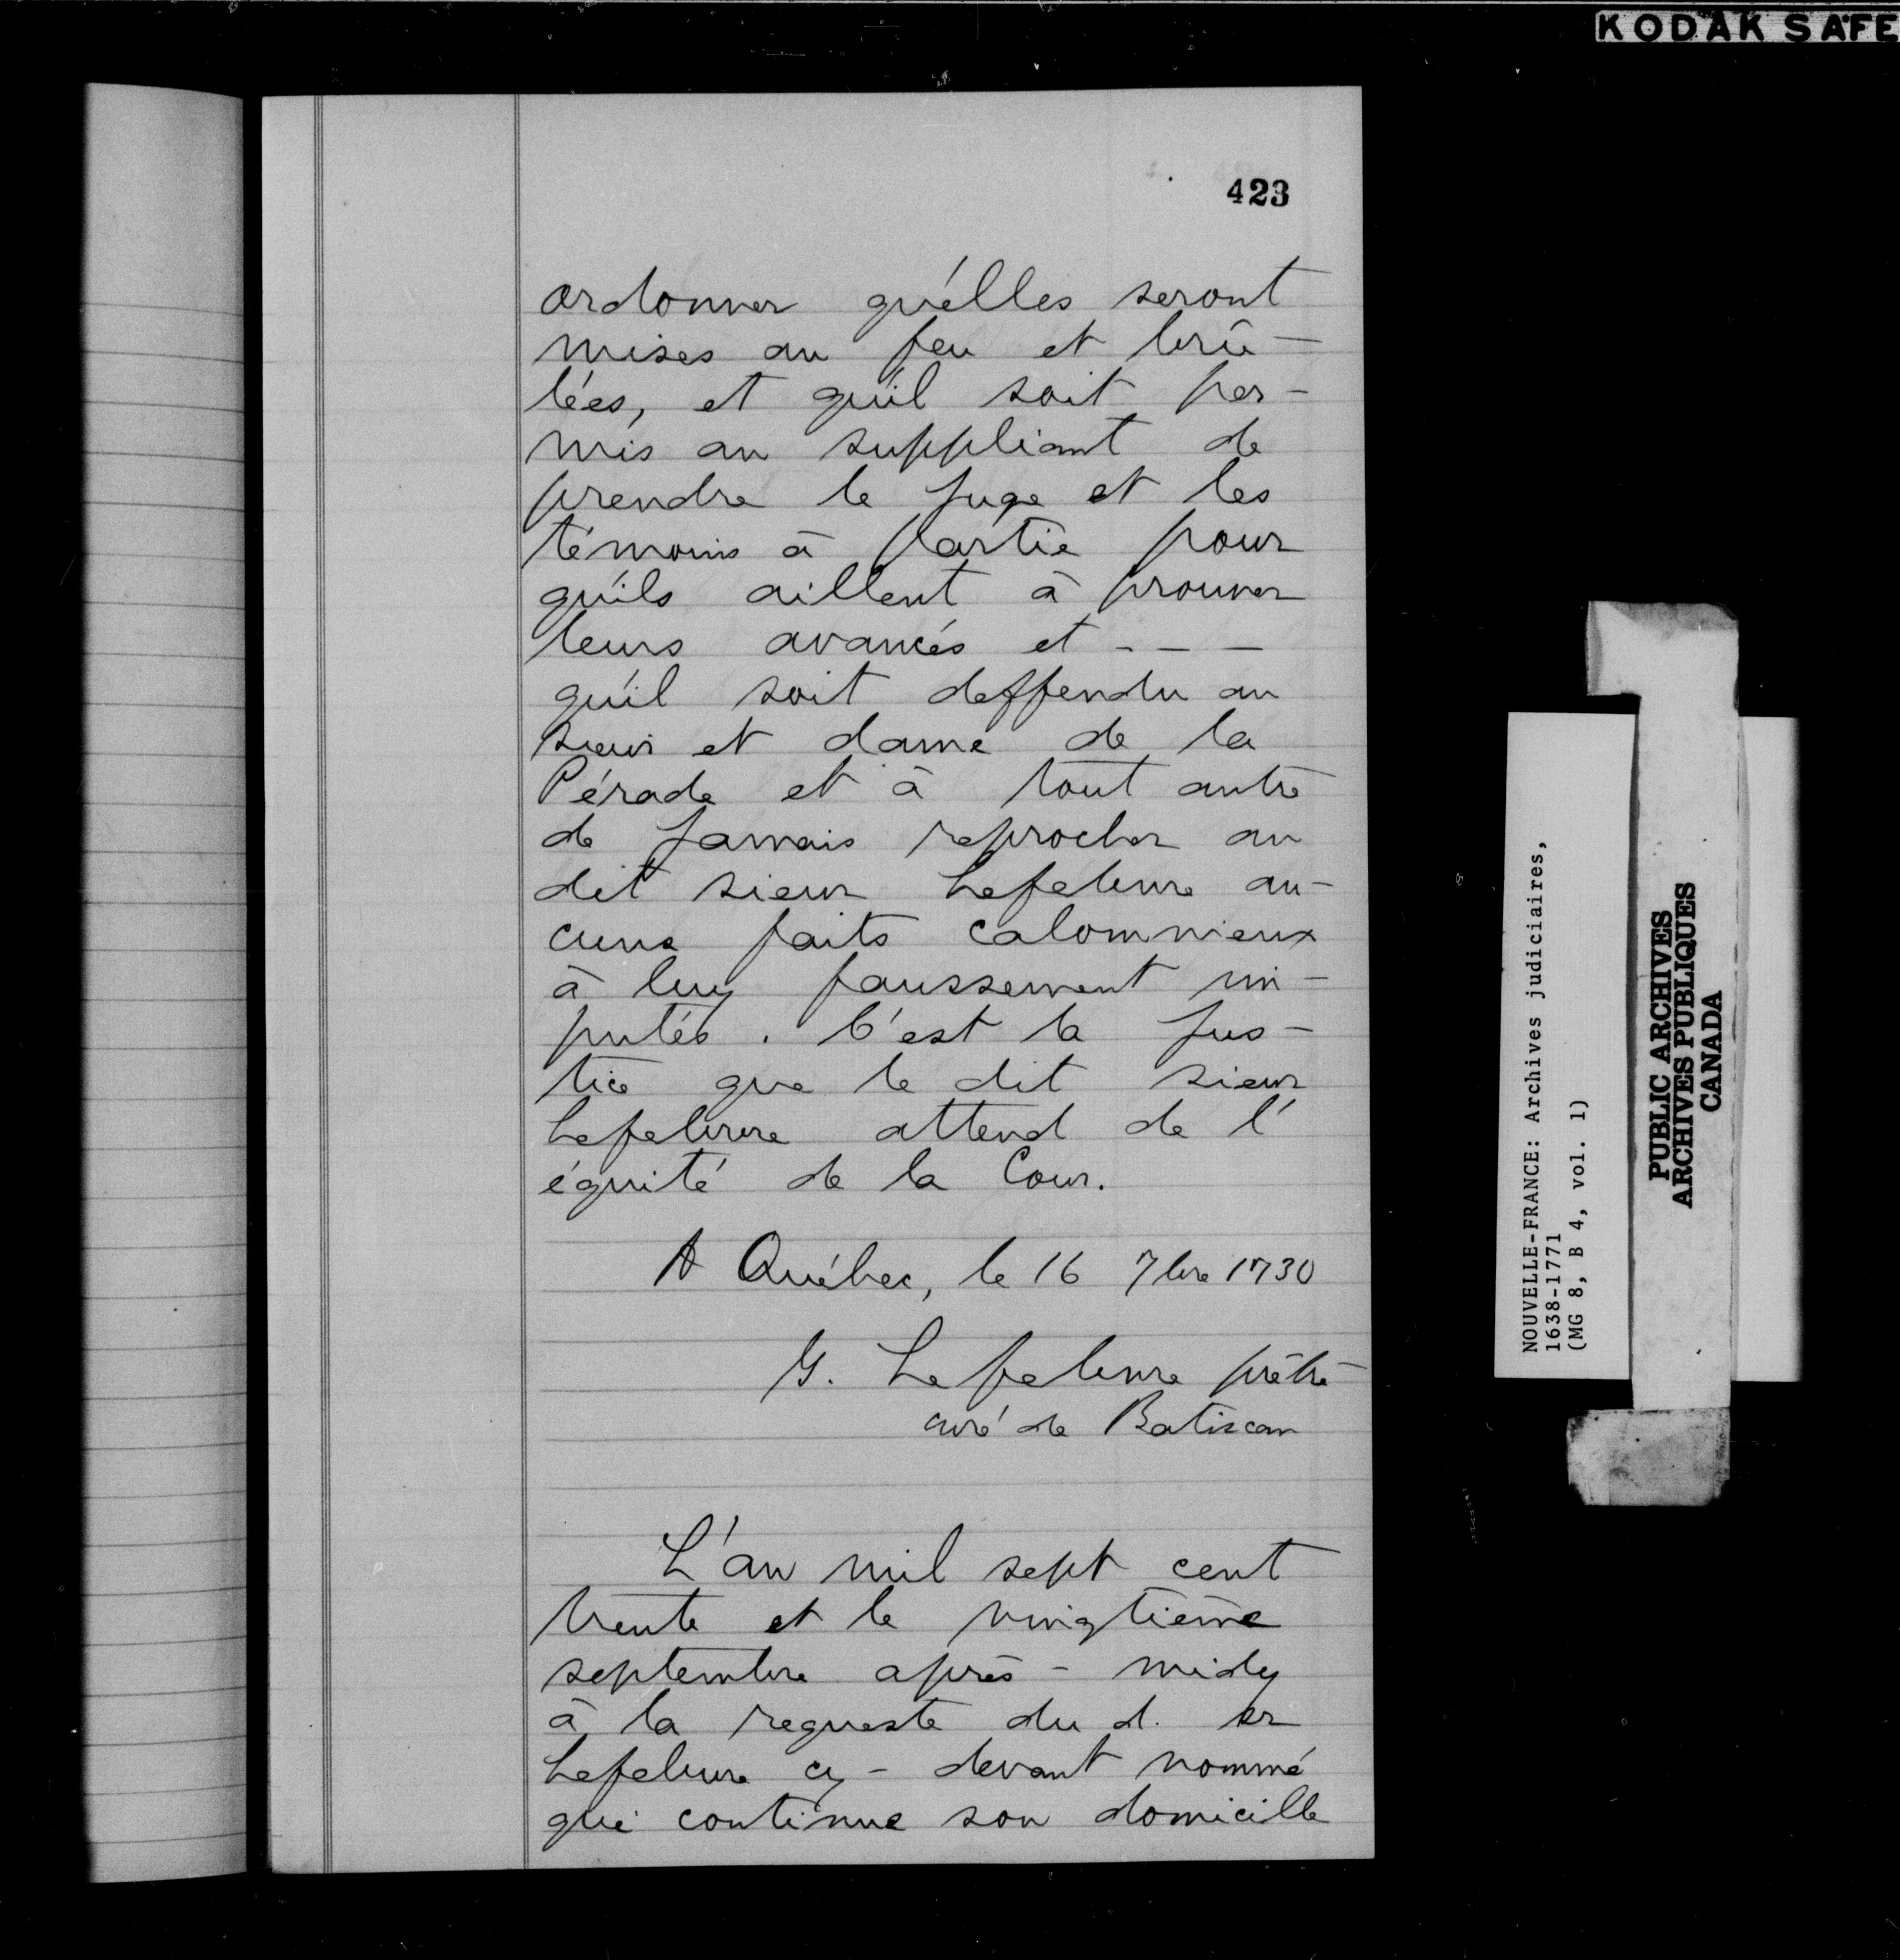 KODAK SAFE
423
ordonner qu'elles seront
mises au feu et brû-
lées, et qu'il soit per-
mis au suppliant de
prendre le juge et les
témoins à partie pour
qu'ils aillent à prouver
leurs avancés et - - -
qu'il soit deffendu au
sieur et dame de la
Pérade et à tout autre
de jamais reprocher au
dit sieur Lefebvre au-
cuns faits calomnieux
à luy faussement im-
putés. C'est la jus-
tice que le dit sieur
Lefebvre attend de l'
équité de la Cour.
A Québec, le 16 7bre 1730
G. Lefebvre prêtre
curé de Batiscan
L'an mil sept cent
trente et le vingtième
septembre après-midy
à la requeste du d. sr
Lefebvre cy-devant nommé
qui continue son domicille
NOUVELLE-FRANCE: Archives judiciaires,
1638-1771
(MG 8, B 4, vol. 1)
PUBLIC ARCHIVES
ARCHIVES PUBLIQUES
CANADA